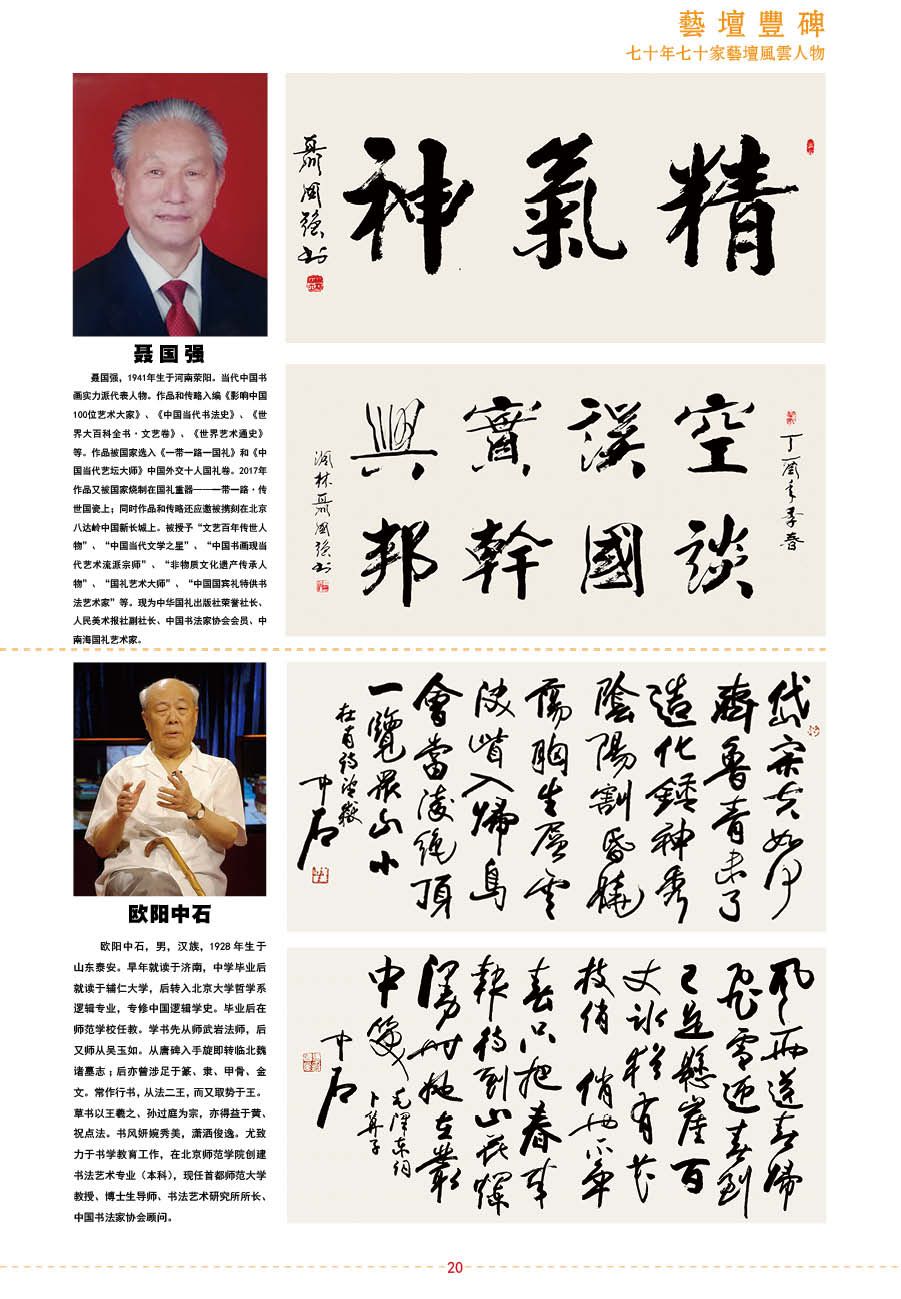 藝壇豐碑
七十年七十家藝壇風雲人物
精氣神
聶國强书
聂国强
聂国强，1941年生于河南荥阳。当代中国书
画实力派代表人物。作品和传略入编《影响中国
100位艺术大家》、《中国当代书法史》、《世
界大百科全书·文艺卷》、《世界艺术通史》
等。作品被国家选入《一带一路一国礼》和《中
国当代艺坛大师》中国外交十人国礼卷。2017年
作品又被国家烧制在国礼重器——一带一路·传
世国瓷上；同时作品和传略还应邀被携刻在北京
八达岭中国新长城上。被授予“文艺百年传世人
物”、“中国当代文学之星”、“中国书画现当
代艺术流派宗师”、“非物质文化遗产传承人
物”、“国礼艺术大师”、“中国国宾礼特供书
法艺术家”等。现为中华国礼出版社荣誉社长、
人民美术报社副社长、中国书法家协会会员、中
南海国礼艺术家。
丁酉年季春
空談
誤國
實幹
興邦
聶國强书
欧阳中石
欧阳中石，男，汉族，1928年生于
山东泰安。早年就读于济南，中学毕业后
就读于辅仁大学，后转入北京大学哲学系
逻辑专业，专修中国逻辑学史。毕业后在
师范学校任教。学书先从师武岩法师，后
又师从吴玉如。从唐碑入手旋即转临北魏
诸墓志；后亦曾涉足于篆、隶、甲骨、金
文。常作行书，从法二王，而又取势于王。
草书以王羲之、孙过庭为宗，亦得益于黄、
祝点法。书风妍婉秀美，潇洒俊逸。尤致
力于书学教育工作，在北京师范学院创建
书法艺术专业（本科），现任首都师范大学
教授、博士生导师、书法艺术研究所所长、
中国书法家协会顾问。
岱宗夫如何
齊魯青未了
造化鍾神秀
陰陽割昏曉
蕩胸生層雲
決眥入歸鳥
會當凌絕頂
一覽眾山小
杜甫詩望嶽
中石
風雨送春歸
飛雪迎春到
已是懸崖百
丈冰猶有花
枝俏 俏也不爭
春只把春來
報待到山花爛
漫時她在叢
中笑
毛澤東詞
卜算子
中石
20